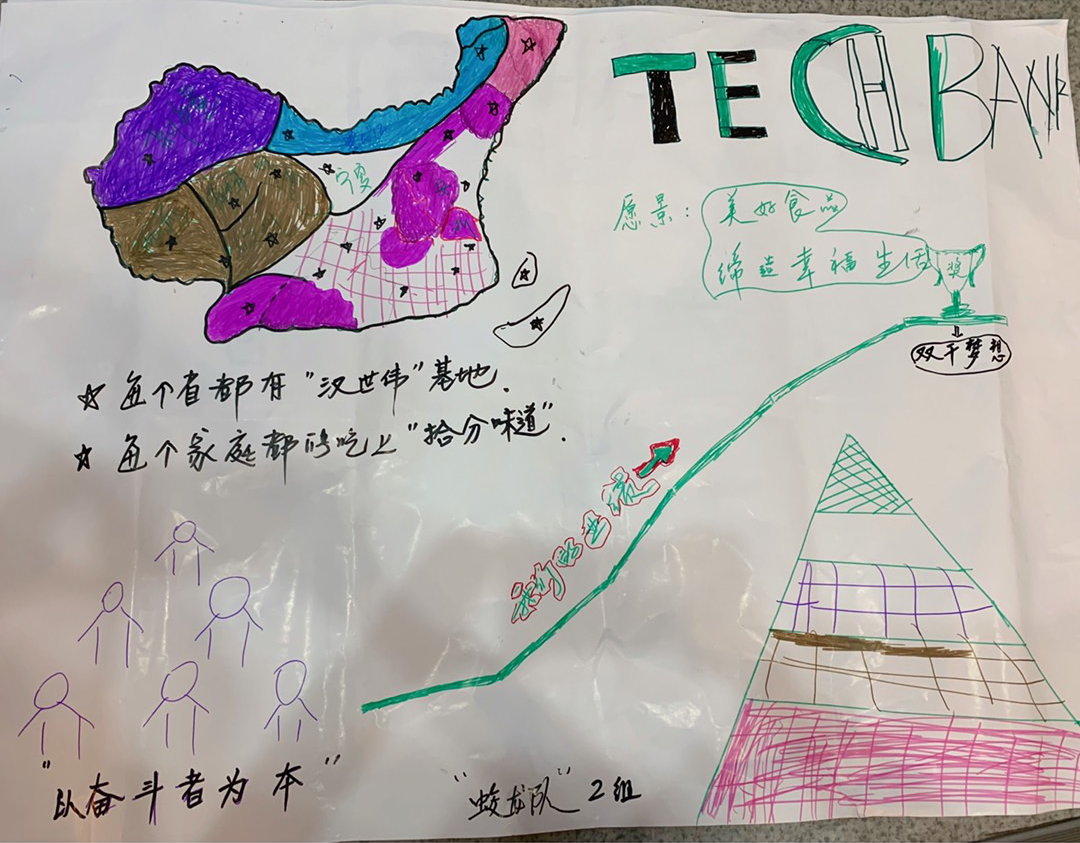 TECH BANK
宁夏
愿景：美好食品
缔造幸福生活
奖
双千梦想
☆ 每个省都有“汉世伟”基地.
☆ 每个家庭都能吃上“拾分味道”.
我们的业绩
“以奋斗者为本”
“蛟龙队” 2组